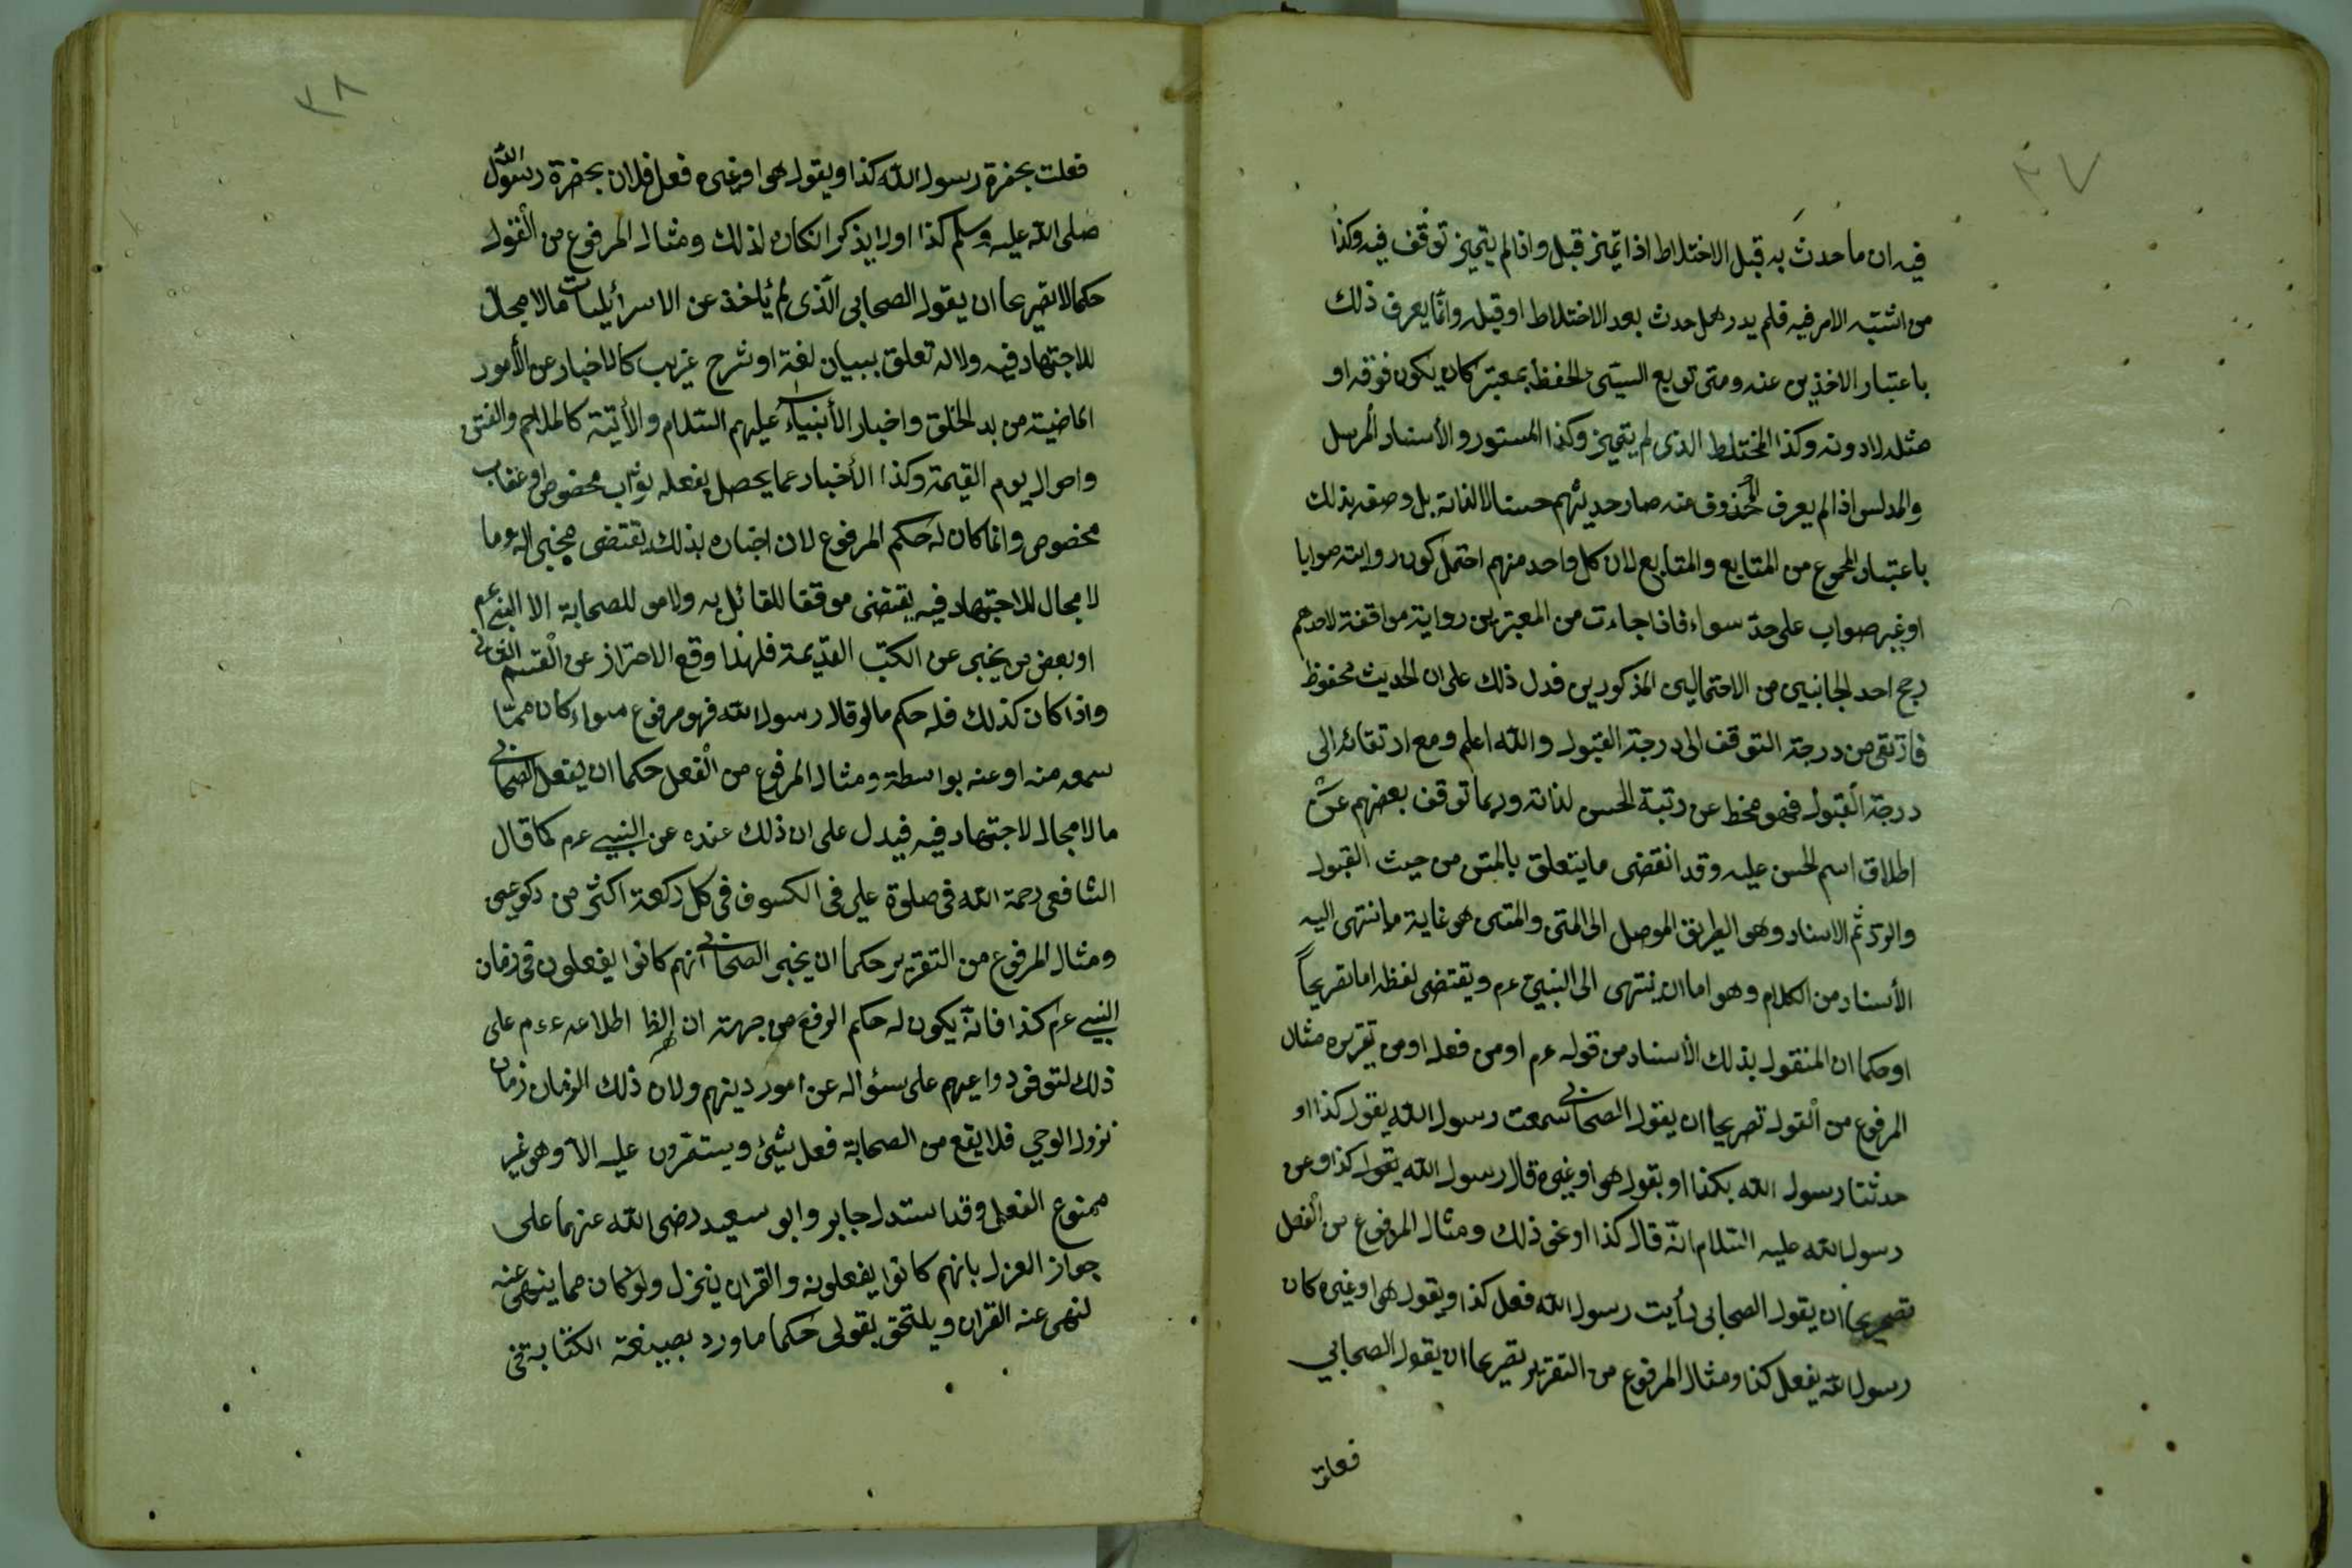 ٣٧
فيه ان ما حدث به قبل الاختلاط اذا تميز قبل واذا لم يتميز توقف فيه وكذا
من اشتبه الامر فيه فلم يدر هل حدث بعد الاختلاط او قبله وانما يعرف ذلك
باعتبار الاخذين عنه ومتى توبع السيئ الحفظ بمعتبر كان يكون فوقه او
مثله لا دونه وكذا المختلط الذى لم يتميز وكذا المستور والأسناد المرسل
والمدلس اذا لم يعرف المحذوف منه صار حديثهم حسنا لا لذاته بل وصفه بذلك
باعتبار المجموع من المتابع والمتابع لان كل واحد منهم احتمل كون روايته صوابا
او غير صواب على حد سواء فاذا جاءت من المعتبرين رواية موافقة لاحدهم
رجح احد الجانبين من الاحتمالين المذكورين فدل ذلك على ان الحديث محفوظ
فارتقى من درجة التوقف الى درجة القبول والله اعلم ومع ارتقائه الى
درجة القبول فهو منحط عن رتبة الحسن لذاته وربما توقف بعضهم عن
اطلاق اسم الحسن عليه وقد انقضى ما يتعلق بالمتن من حيث القبول
والرد ثم الاسناد وهو الطريق الموصل الى المتن والمتن هو غاية ما انتهى اليه
الأسناد من الكلام وهو اما ان ينتهى الى النبي عم ويقتضى لفظه اما تصريحاً
او حكما ان المنقول بذلك الأسناد من قوله عم او من فعله او من تقريره مثال
المرفوع من القول تصريحا ان يقول الصحابي سمعت رسول الله يقول كذا او
حدثنا رسول الله بكذا او يقول هو او غيره قال رسول الله يقول كذا وعن
رسول الله عليه السلام انه قال كذا او نحو ذلك ومثال المرفوع من الفعل
تصريحا ان يقول الصحابى رأيت رسول الله فعل كذا ويقول هو او غيره كان
رسول الله يفعل كذا ومثال المرفوع من التقرير تصريحا ان يقول الصحابي
فعلت
٣٨
فعلت بحضرة رسول الله كذا ويقول هو او غيره فعل فلان بحضرة رسول الله
صلى الله عليه وسلم كذا اولا يذكر انكاره لذلك ومثال المرفوع من القول
حكما لا تصريحا ان يقول الصحابى الذى لم يأخذ عن الاسرائيليات مالا مجال
للاجتهاد فيه ولا له تعلق ببيان لغة او شرح غريب كالاخبار عن الأمور
الماضية من بدا الخلق واخبار الأنبياء عليهم السلام والأتية كالملاحم والفتن
واحوال يوم القيمة وكذا الأخبار عما يحصل بفعله ثواب مخصوص او عقاب
مخصوص وانما كان له حكم المرفوع لان اخباره بذلك يقتضى مخبرا له وما
لا مجال للاجتهاد فيه يقتضى موقفا للقائل به ولا موقف للصحابة الا النبي عم
او بعض من يخبر عن الكتب القديمة فلهذا وقع الاحتراز عن القسم الثانى
واذا كان كذلك فله حكم ما لو قال رسول الله فهو مرفوع سواء كان مما
سمعه منه او عنه بواسطة ومثال المرفوع من الفعل حكما ان يفعل الصحابي
ما لا مجال لاجتهاد فيه فيدل على ان ذلك عنده عن النبي عم كما قال
الشافعى رحمة الله فى صلوة على فى الكسوف فى كل ركعة اكثر من ركوعين
ومثال المرفوع من التقرير حكما ان يخبر الصحابي انهم كانوا يفعلون فى زمان
النبي عم كذا فانه يكون له حكم الرفع من جهة ان الظاهر اطلاعه عم على
ذلك لتوفر دواعيهم على سؤاله عن امور دينهم ولان ذلك الزمان زمان
نزول الوحي فلا يقع من الصحابة فعل شيئ ويستمرون عليه الا وهو غير
ممنوع الفعل وقد استدل جابر وابو سعيد رضى الله عنهما على
جواز العزل بانهم كانوا يفعلونه والقران ينزل ولو كان مما ينهى عنه
لنهى عنه القران ويلتحق بقولى حكما ما ورد بصيغة الكناية فى